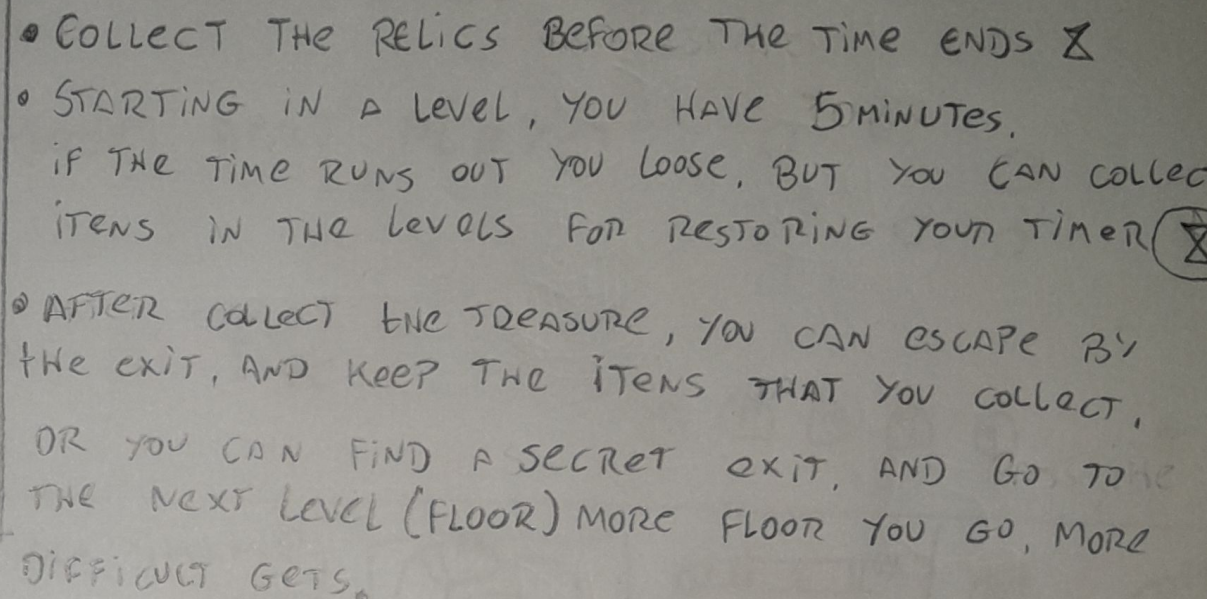 • COLLECT THE RELICS BEFORE THE TIME ENDS
• STARTING IN A LEVEL, YOU HAVE 5 MINUTES.
IF THE TIME RUNS OUT YOU LOOSE. BUT YOU CAN COLLEC
ITENS IN THE LEVELS FOR RESTORING YOUR TIMER
• AFTER COLLECT THE TREASURE, YOU CAN ESCAPE BY
THE EXIT, AND KEEP THE ITENS THAT YOU COLLECT,
OR YOU CAN FIND A SECRET EXIT, AND GO TO
THE NEXT LEVEL (FLOOR) MORE FLOOR YOU GO, MORE
DIFFICULT GETS.